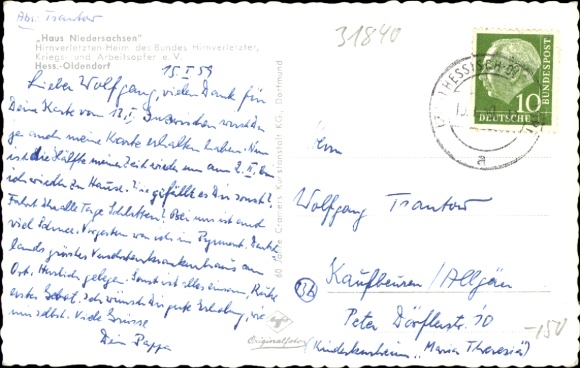 Abs. Trantow
31840
„Haus Niedersachsen"
Hirnverletzten-Heim des Bundes Hirnverletzter,
Kriegs- und Arbeitsopfer e. V.
Hess.-Oldendorf
15. I 59
Lieber Wolfgang, vielen Dank für
Deine Karte vom 12. I. Inzwischen wirst Du
ja auch meine Karte erhalten haben. Nun
ist die Hälfte meine Zeit wieder um am 2. II. bin
ich wieder zu Hause. Wie gefällt es Dir sonst?
Fahrt Ihr alle Tage Schlitten? Bei uns ist auch
viel Schnee. Vorgestern war ich in Pyrmont. Deutsch-
lands größtes Versehrtenkrankenhaus am
Ort. Herrlich gelegen. Sonst ist alles einsam, Ruhe
erstes Gebot. Ich wünsche Dir gute Erholung, wie
mir selbst. Viele Grüsse
Dein Pappa
60 Jahre Cramers Kunstanstalt KG., Dortmund
Agfa
Originalfoto
HESSISCH-
a
10
DEUTSCHE
BUNDESPOST
Herrn
Wolfgang Trantow
13b
Kaufbeuren/Allgäu
Peter Dörflerstr. 10
(Kinderkurheim „Maria Theresia")
-150